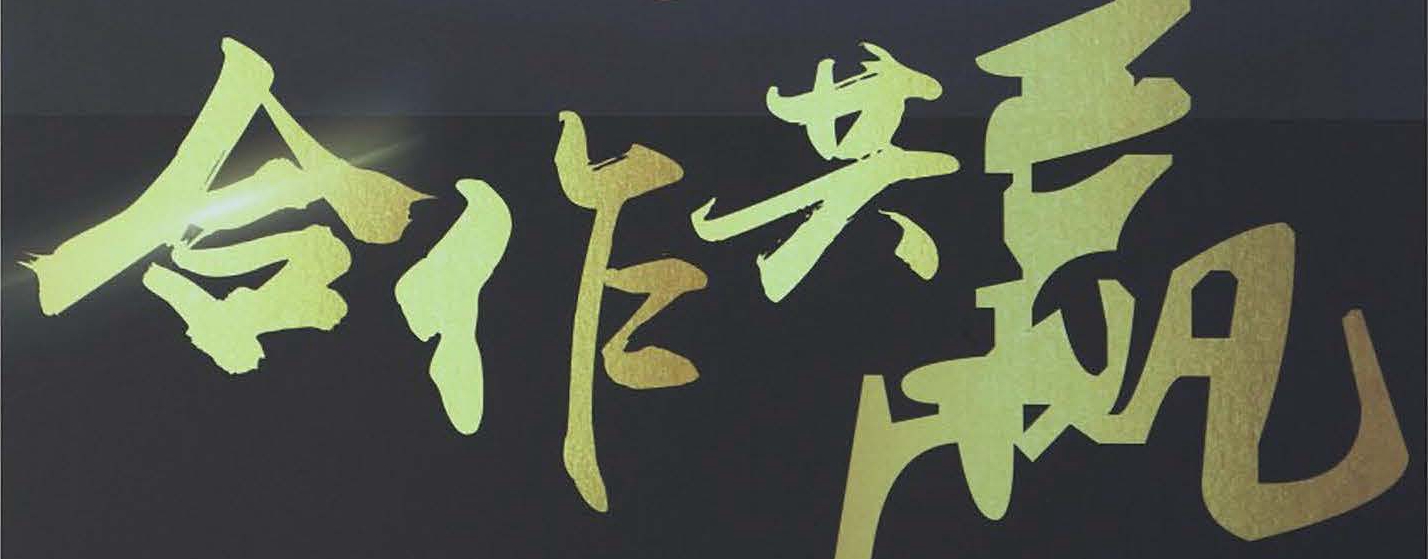 合作共赢